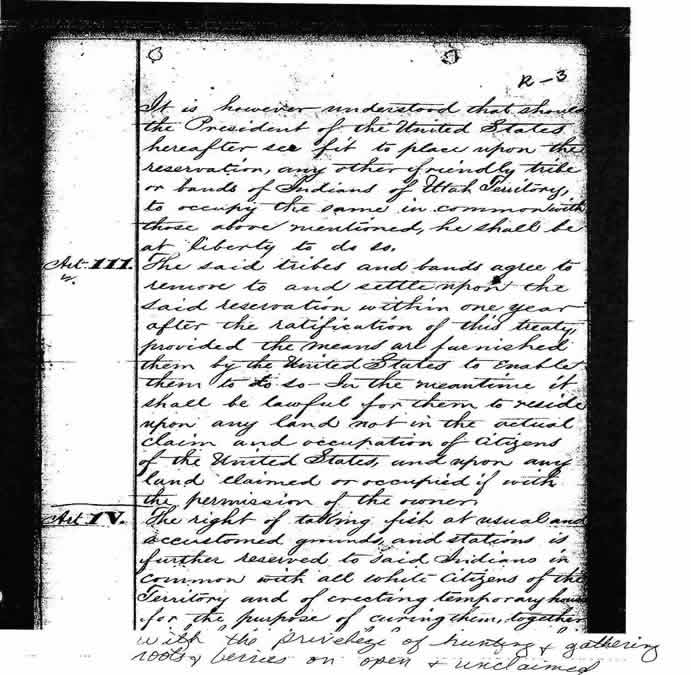 R-3
It is however understood that should
the President of the United States
hereafter see fit to place upon the
reservation, any other friendly tribe
or bands of Indians of Utah Territory,
to occupy the same in common with
those above mentioned, he shall be
at liberty to do so.
Art. III. The said tribes and bands agree to
remove to and settle upon the
said reservation within one year
after the ratification of this treaty,
provided the means are furnished
them by the United States to enable
them to do so - In the meantime it
shall be lawful for them to reside
upon any land not in the actual
claim and occupation of Citizens
of the United States, and upon any
land claimed or occupied if with
the permission of the owner.
Art IV. The right of taking fish at usual and
accustomed grounds, and stations is
further reserved to said Indians in
common with all white Citizens of the
Territory and of erecting temporary houses
for the purpose of curing them, together
with the priveleze of hunting & gathering
roots & berries on open & unclaimed